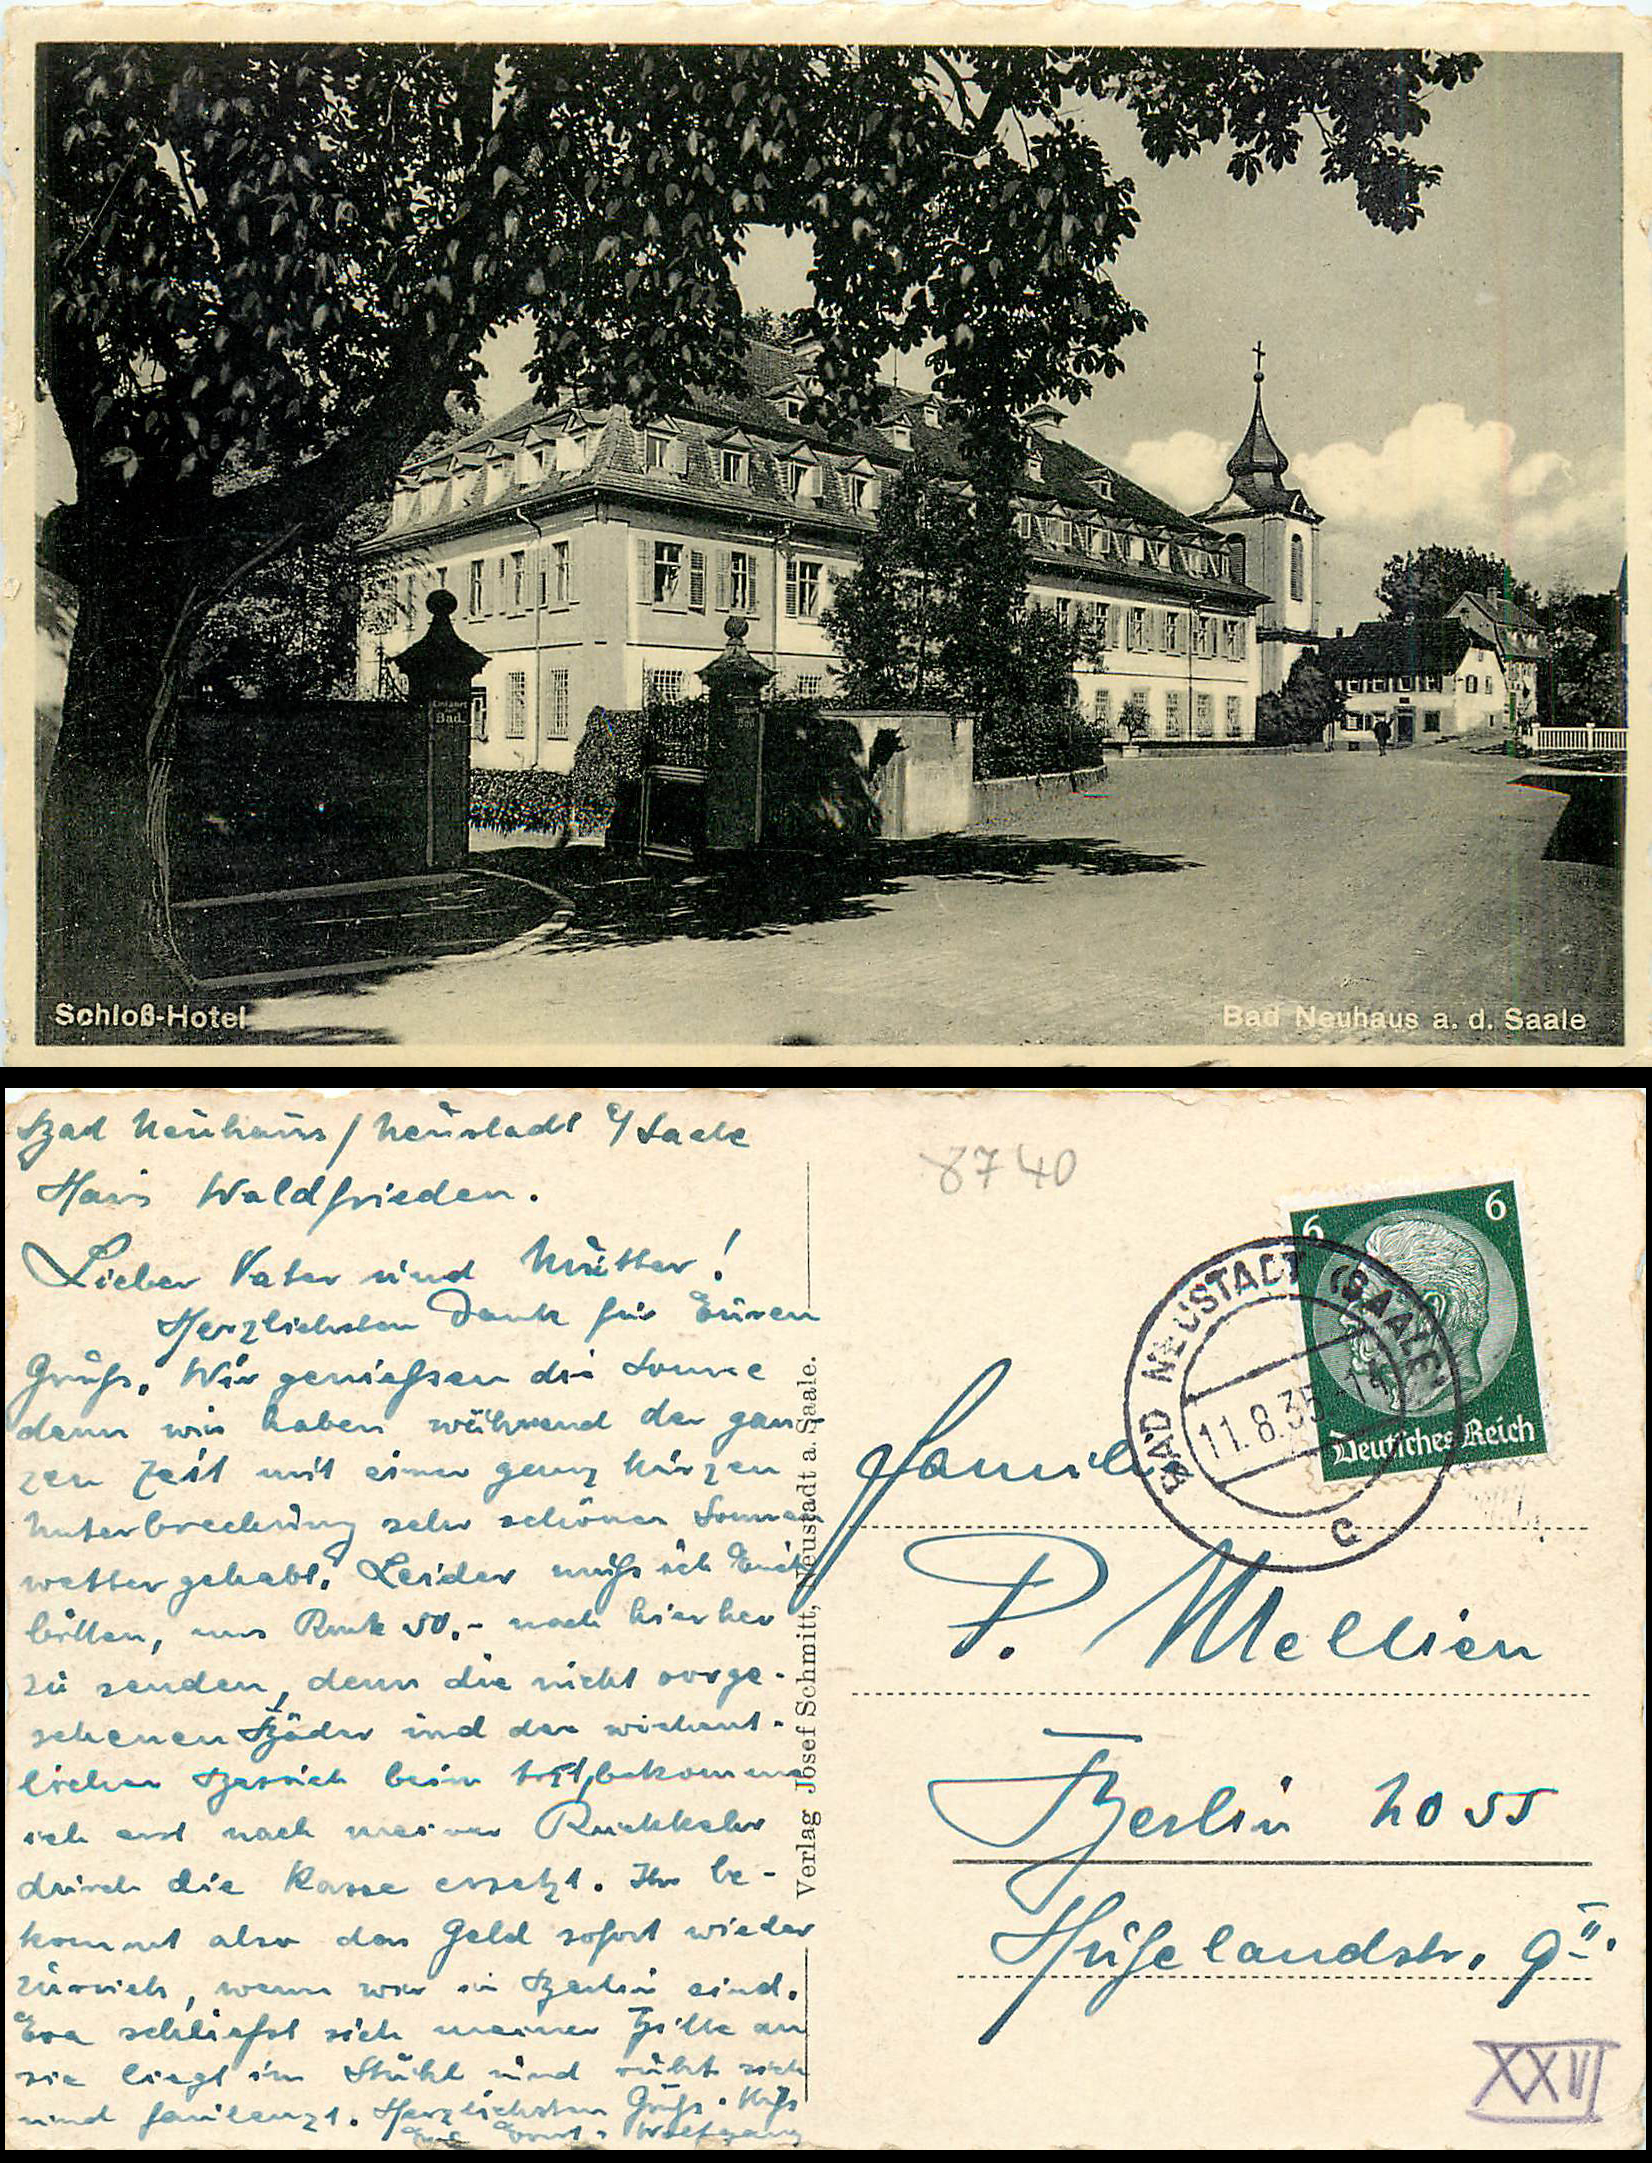 Schloß-Hotel
Bad Neuhaus a. d. Saale
Bad
Bad
Bad Neuhaus / Neustadt a/Saale
Haus Waldfrieden.
Lieber Vater und Mutter!
Herzlichsten Dank für Euren
Gruß. Wir genießen die Sonne
denn wir haben während der gan-
zen Zeit mit einer ganz kurzen
Unterbrechung sehr schönes Sonnen
wetter gehabt. Leider muß ich Euch
bitten, uns Rmk 50.- nach hierher
zu senden, denn die nicht vorge-
sehenen Bäder und den
lichen beim bekomme
ich erst nach meiner Rückkehr
durch die Kasse ersetzt. Ihr be-
kommt also das Geld sofort wieder
zurück, wenn wir in Berlin sind.
Eva schließt sich meiner Bitte an
sie liegt im Stuhl und ruht sich
und faulenzt. Herzlichsten Gruß + Kuß
Wolfgang
Verlag Josef Schmitt, Neustadt a. Saale.
8740
6
6
Deutsches Reich
BAD NEUSTADT (SAALE)
11.8.35
C
Familie
P. Mellien
Berlin NO 55
Hufelandstr. 9 II.
XXVI